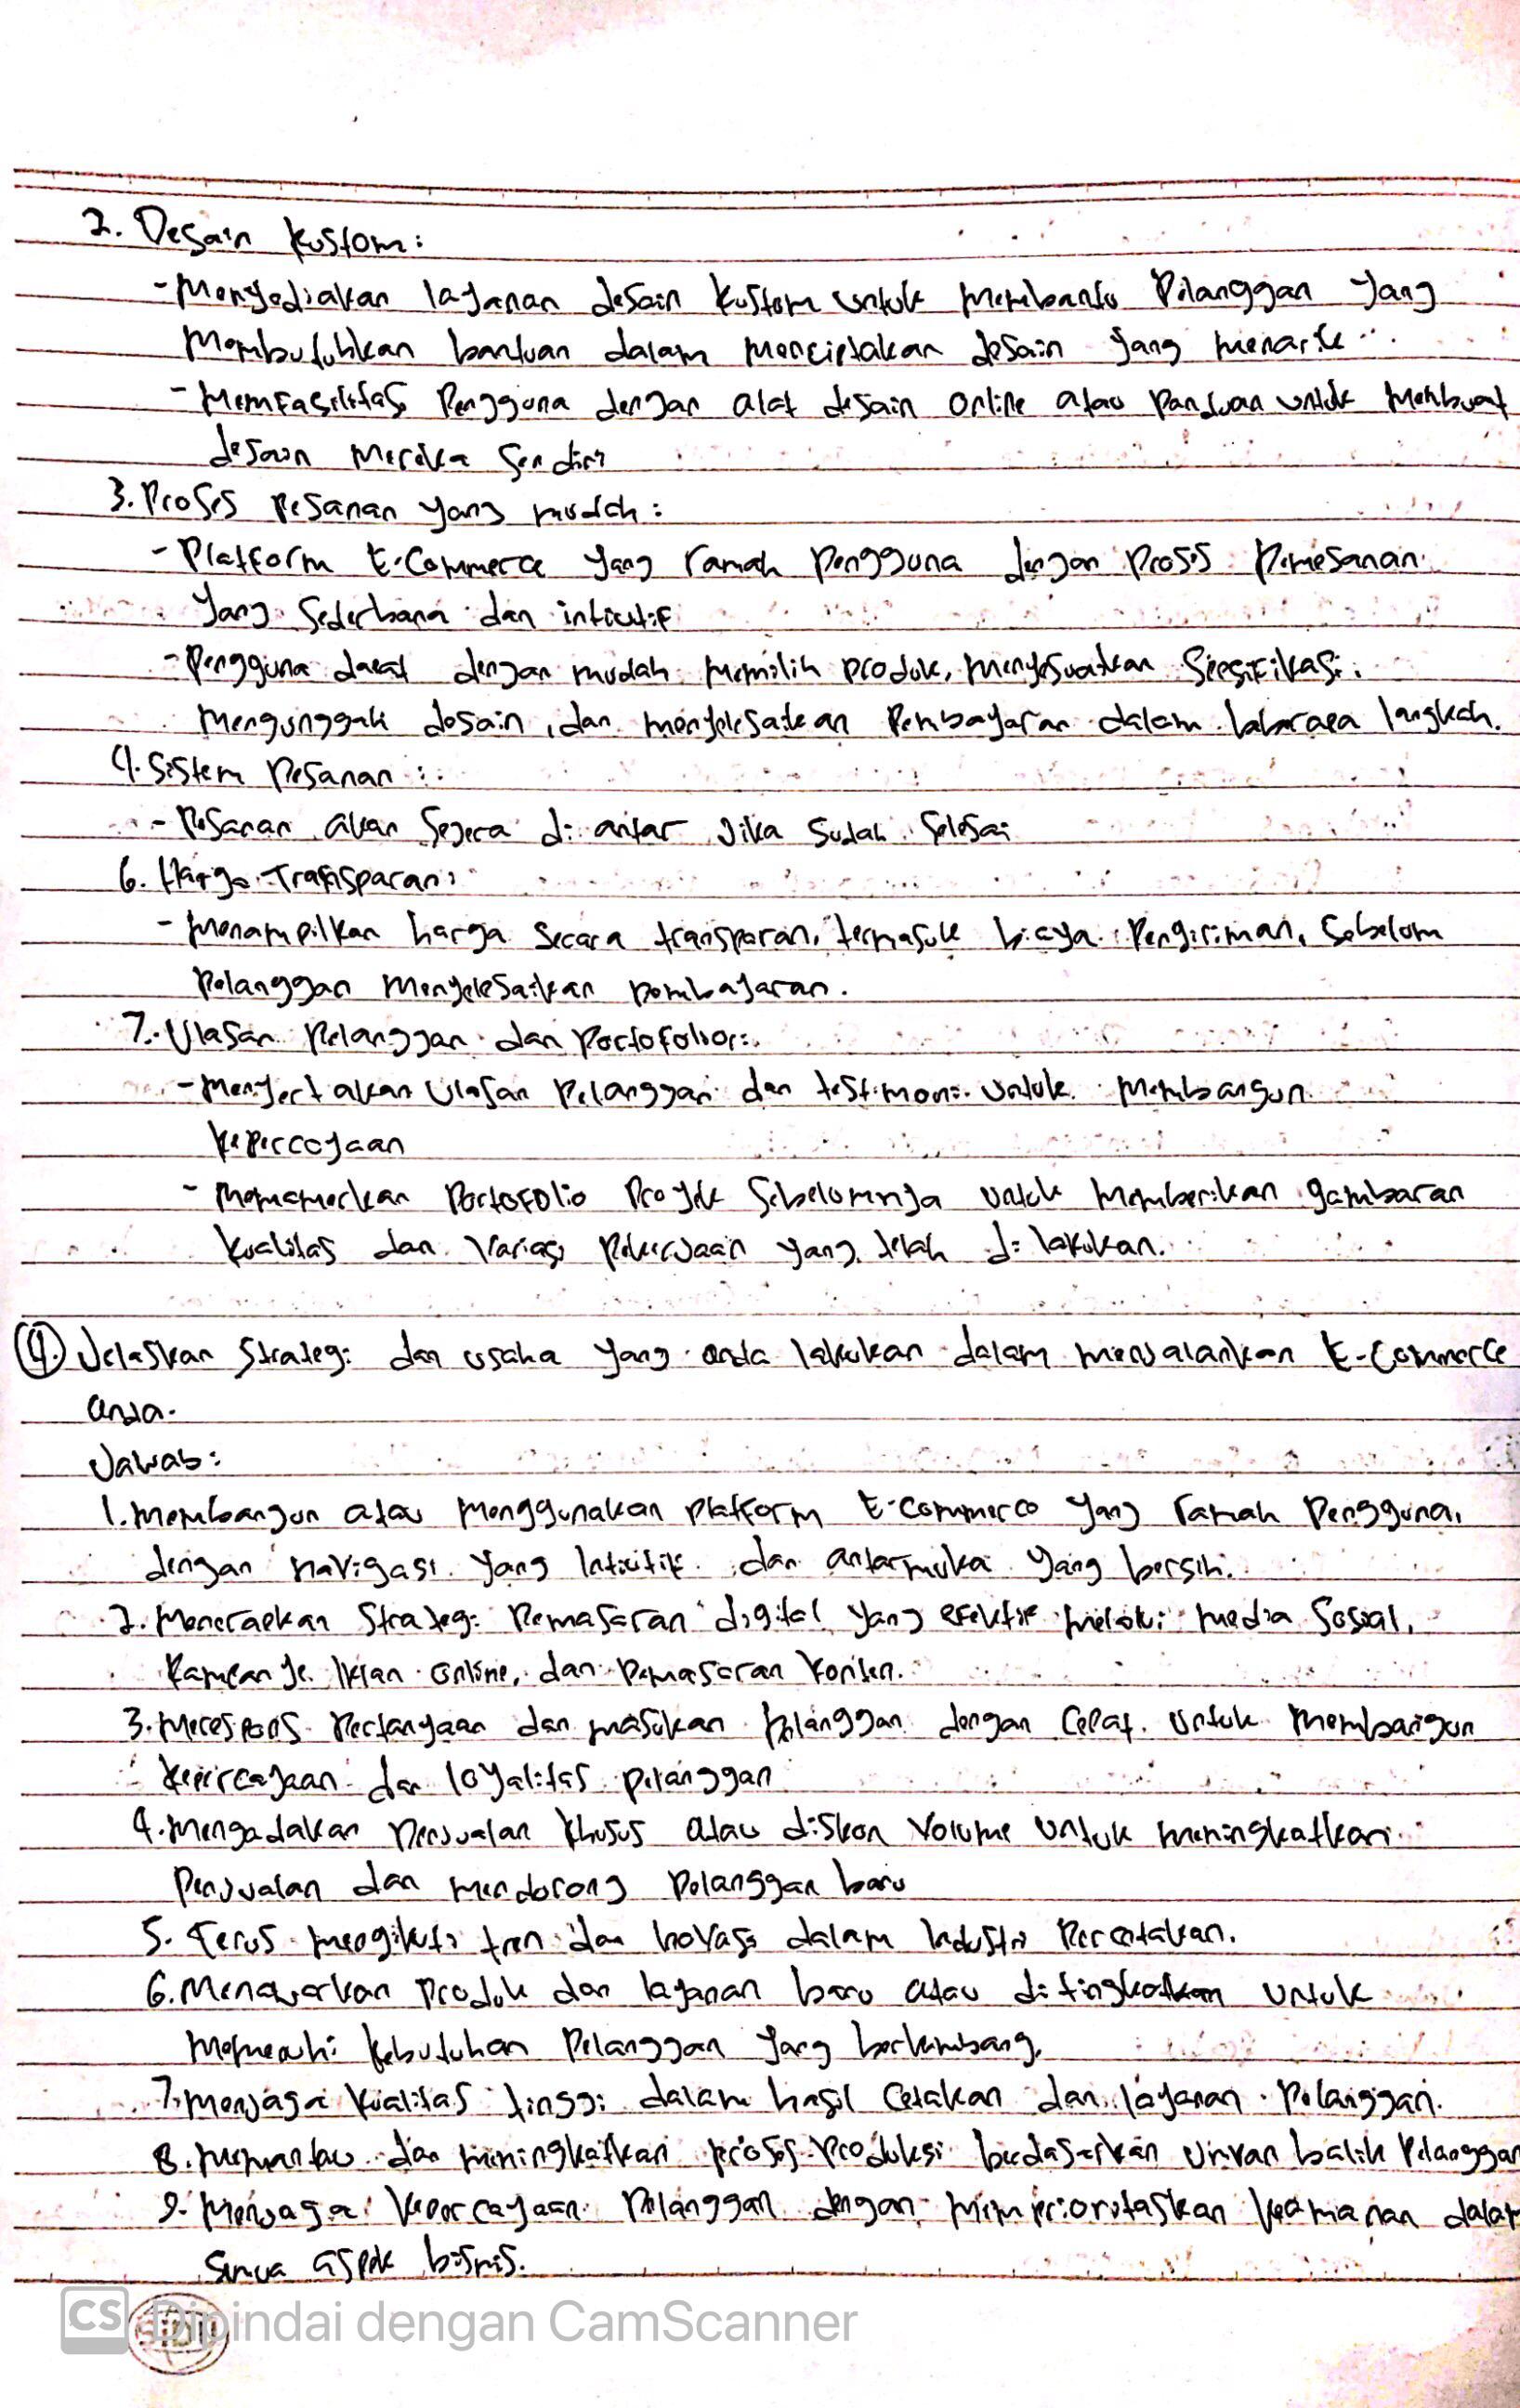 2. Desain kustom:
- Menyediakan layanan desain kustom untuk membantu Pelanggan yang
Membutuhkan bantuan dalam menciptakan desain yang menarik.
- Memfasilitas Pengguna dengan alat desain online atau Panduan untuk Membuat
desain mereka sendiri
3. Proses Pesanan yang mudah:
- Platform E-Commerce yang ramah Pengguna dengan Proses Pemesanan
Yang Sederhana dan intuitif
- Pengguna dapat dengan mudah memilih produk, menyesuaikan Spesifikasi,
Mengunggah desain, dan menyelesaikan Pembayaran dalam beberapa langkah.
4. Sistem Pesanan :
- Pesanan akan Segera di antar Jika Sudah Selesai
6. Harga Transparan:
- Menampilkan harga secara transparan, termasuk biaya Pengiriman, Sebelum
Pelanggan Menyelesaikan Pembayaran.
7. Ulasan Pelanggan dan Portofolio:
- Menyertakan Ulasan Pelanggan dan testimoni untuk Membangun
kepercayaan
- Memamerkan Portofolio Proyek Sebelumnya untuk Memberikan gambaran
kualitas dan Variasi Pekerjaan yang telah di lakukan.
4. Jelaskan Strategi dan usaha yang anda lakukan dalam menjalankan E-Commerce
anda.
Jawab:
1. Membangun atau Menggunakan Platform E-Commerce yang ramah Pengguna,
dengan navigasi yang Intuitif dan antarmuka yang bersih.
2. Menerapkan Strategi Pemasaran digital yang efektif melalui media Sosial,
Kampanye Iklan online, dan Pemasaran Konten.
3. Merespons Pertanyaan dan masukan Pelanggan dengan Cepat untuk Membangun
kepercayaan dan loyalitas pelanggan
4. Mengadakan Penjualan khusus atau diskon Volume untuk meningkatkan
Penjualan dan Mendorong Pelanggan baru
5. Terus mengikuti tren dan Inovasi dalam Industri Percetakan.
6. Menawarkan Produk dan layanan baru atau ditingkatkan untuk
Memenuhi kebutuhan Pelanggan yang berkembang.
7. Menjaga kualitas tinggi dalam hasil Cetakan dan layanan Pelanggan.
8. Memantau dan meningkatkan proses Produksi berdasarkan Umpan balik Pelanggan
9. Menjaga kepercayaan Pelanggan dengan Memprioritaskan keamanan dalam
Semua aspek bisnis.
CS Dipindai dengan CamScanner